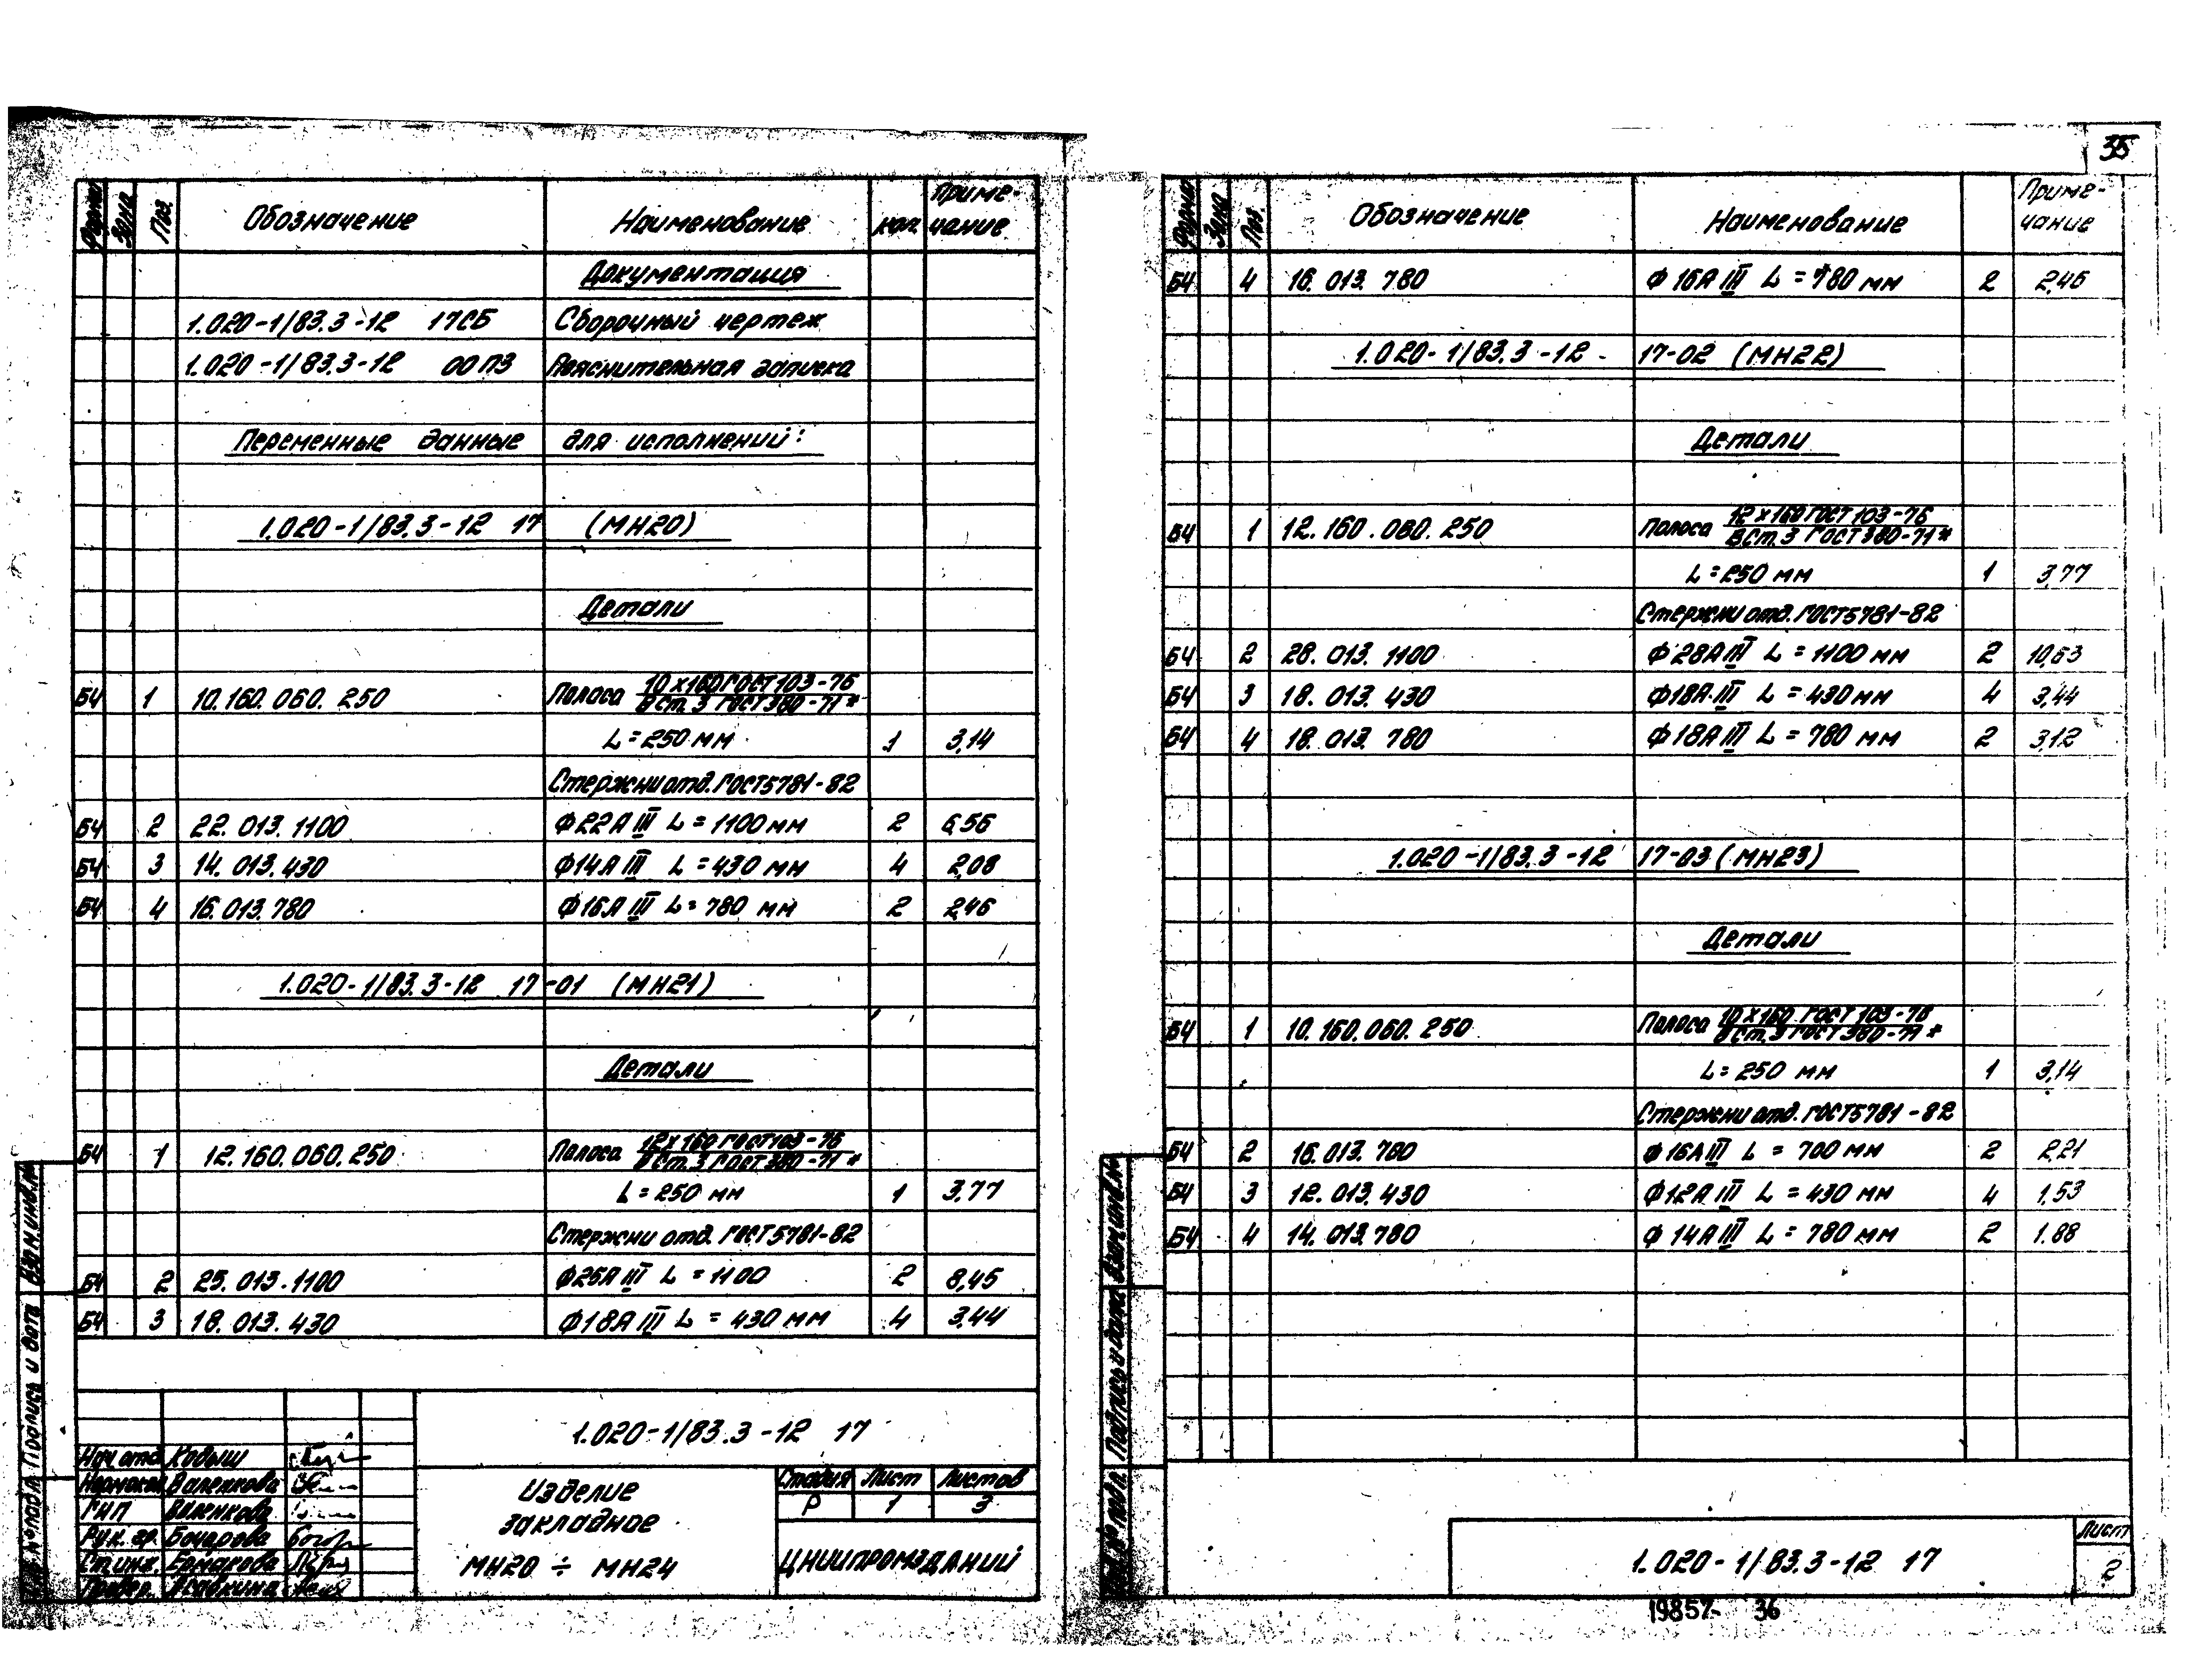 Формат Зона Поз. Обозначение Наименование кол. Приме-
чание
Документация
1.020-1/83.3-12 17СБ Сборочный чертеж
1.020-1/83.3-12 00ПЗ Пояснительная записка
Переменные данные для исполнений:
1.020-1/83.3-12 17 (МН20)
Детали
БЧ 1 10.160.060.250 Полоса 10х160 ГОСТ 103-76
В Ст.3 ГОСТ 380-71*
L=250 мм 1 3,14
Стержни отд. ГОСТ 5781-82
БЧ 2 22.013.1100 Ф22АIII L=1100 мм 2 6,56
БЧ 3 14.013.430 Ф14АIII L=430 мм 4 2,08
БЧ 4 16.013.780 Ф16АIII L=780 мм 2 2,46
1.020-1/83.3-12 17-01 (МН21)
Детали
БЧ 1 12.160.060.250 Полоса 12х160 ГОСТ 103-76
В Ст.3 ГОСТ 380-71*
L=250 мм 1 3,77
Стержни отд. ГОСТ 5781-82
БЧ 2 25.013.1100 Ф25АIII L=1100 2 8,45
БЧ 3 18.013.430 Ф18АIII L=430 мм 4 3,44
Взам.инв.№
Подпись и дата
1.020-1/83.3-12 17
Нач.отд. Кодыш
Валенкова
ГИП
Рук. гр. Бочарова
Ст.инж. Ермакова
Провер.
Изделие
закладное
МН20 ÷ МН24
Стадия Лист Листов
Р 1 3
ЦНИИПРОМЗДАНИЙ
35
Формат Зона Поз. Обозначение Наименование Приме-
чание
БЧ 4 16.013.780 Ф16АIII L=780 мм 2 2,46
1.020-1/83.3-12 - 17-02 (МН22)
Детали
БЧ 1 12.160.060.250 Полоса 12х160 ГОСТ 103-76
В Ст.3 ГОСТ 380-71*
L=250 мм 1 3,77
Стержни отд. ГОСТ 5781-82
БЧ 2 28.013.1100 Ф28АIII L=1100 мм 2 10,63
БЧ 3 18.013.430 Ф18АIII L=430 мм 4 3,44
БЧ 4 18.013.780 Ф18АIII L=780 мм 2 3,12
1.020-1/83.3-12 17-03 (МН23)
Детали
БЧ 1 10.160.060.250 Полоса 10х160 ГОСТ 103-76
В Ст.3 ГОСТ 380-71*
L=250 мм 1 3,14
Стержни отд. ГОСТ 5781-82
БЧ 2 16.013.780 Ф16АIII L=700 мм 2 2,21
БЧ 3 12.013.430 Ф12АIII L=430 мм 4 1,53
БЧ 4 14.013.780 Ф14АIII L=780 мм 2 1.88
Взам.инв.№
Подпись и дата
1.020-1/83.3-12 17
Лист
2
19857- 36